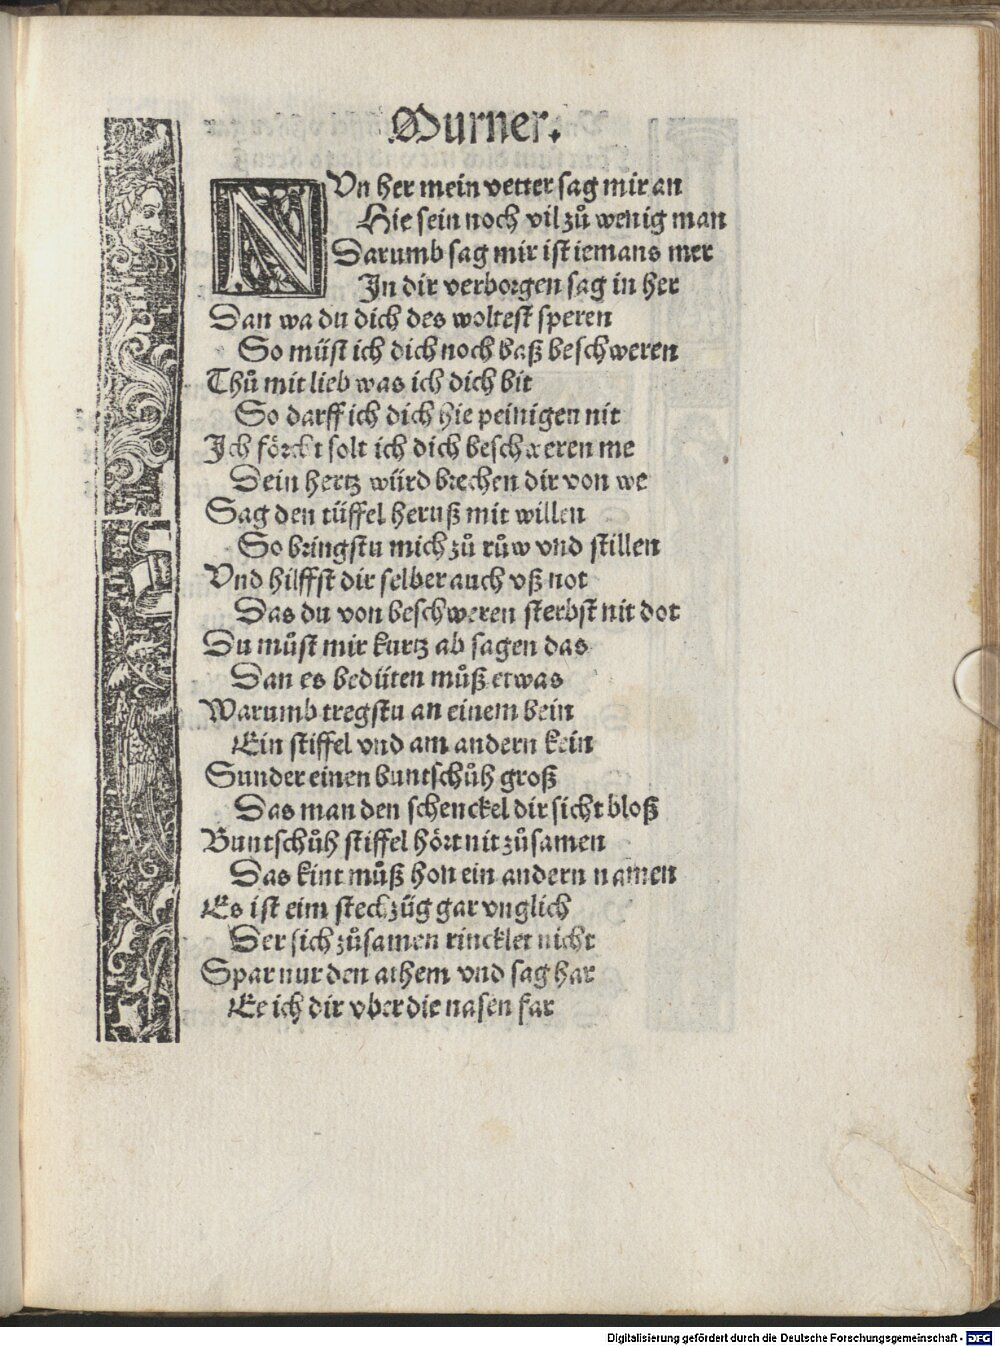 Murner.
NVn her mein vetter sag mir an
Hie sein noch vil zů wenig man
Darumb sag mir ist iemans mer
In dir verborgen sag in her
Dan wa du dich des woltest speren
So müst ich dich noch baß beschweren
Thů mit lieb was ich dich bit
So darff ich dich hie peinigen nit
Ich förcht solt ich dich beschweren me
Dein hertz würd brechen dir von we
Sag den tüffel heruß mit willen
So bringstu mich zů růw vnd stillen
Vnd hilffst dir selber auch vß not
Das du von beschweren sterbst nit dot
Du můst mir kurtz ab sagen das
Dan es bedüten můß etwas
Warumb tregstu an einem bein
Ein stiffel vnd am andern kein
Sunder einen buntschůh groß
Das man den schenckel dir sicht bloß
Buntschůh stiffel hört nit zůsamen
Das kint můß hon ein andern namen
Es ist eim steckzüg gar vnglich
Der sich zůsamen rincklet nicht
Spar nur den athem vnd sag har
Ee ich dir vber die nasen far
Digitalisierung gefördert durch die Deutsche Forschungsgemeinschaft - DFG